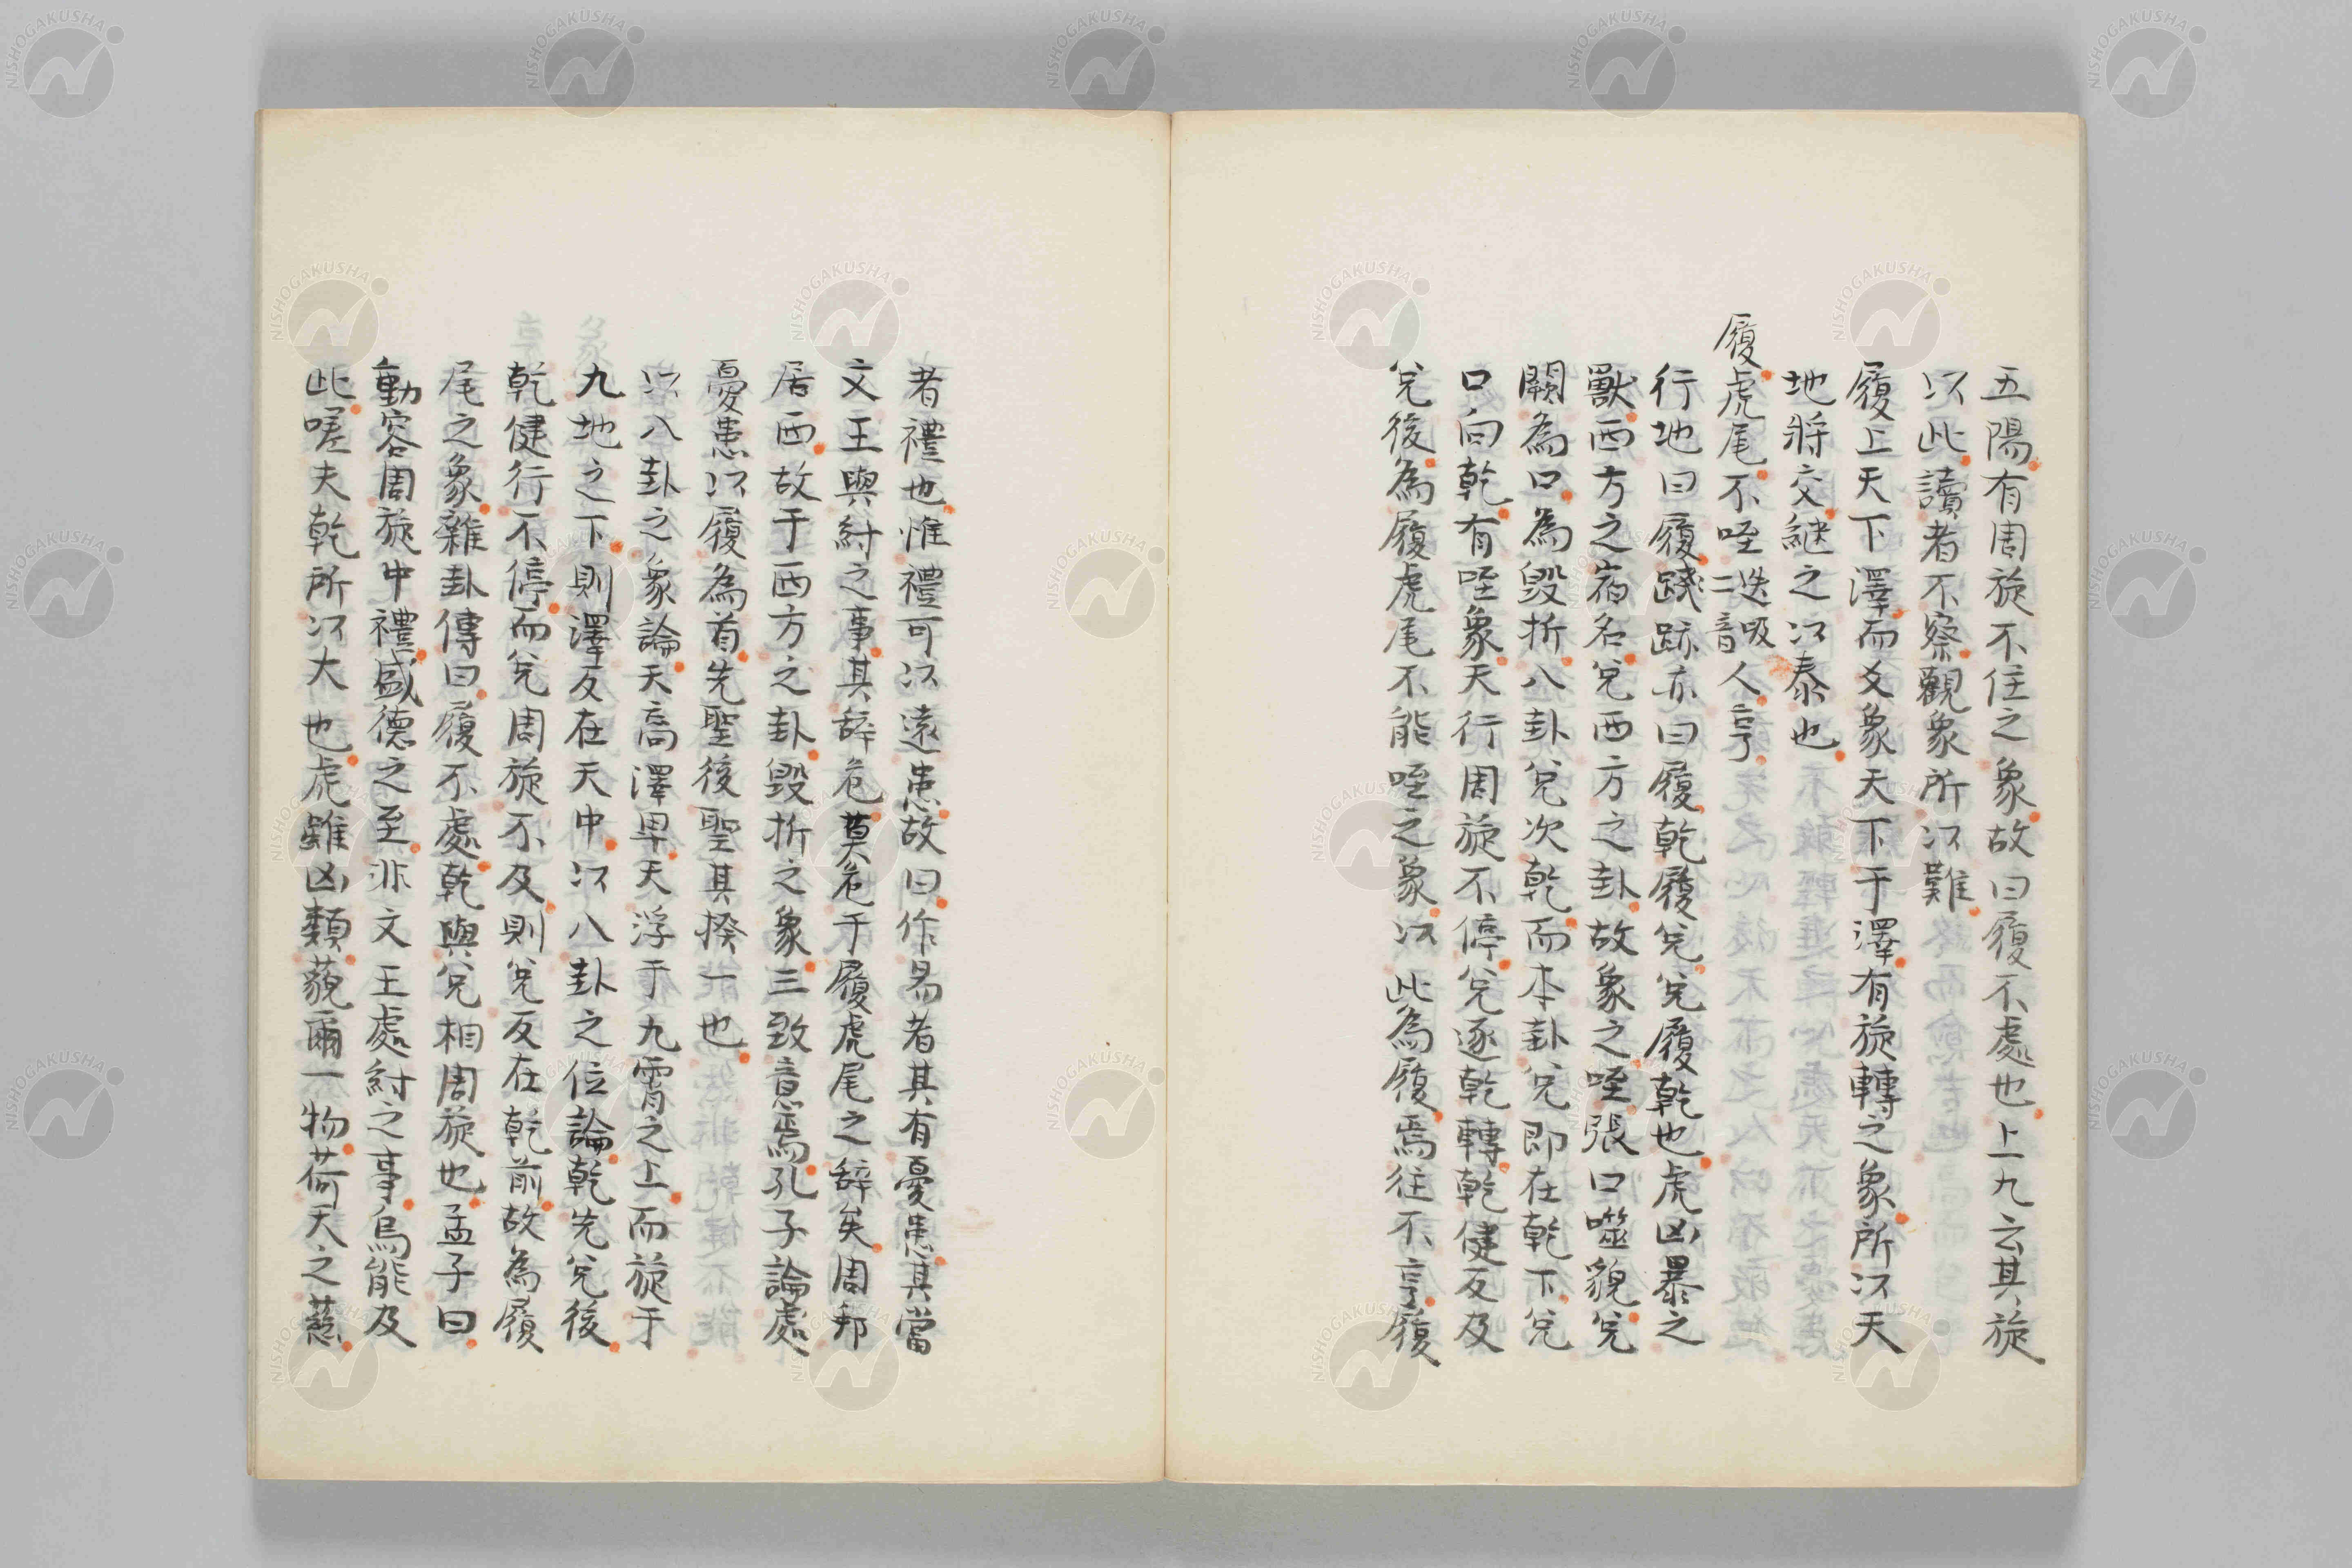 五陽有周旋不住之象故曰履不處也上九云其旋
以此讀者不察觀象所以難
履上天下澤而爻象天下于澤有旋轉之象所以天
地將交継之以泰也
履虎尾不咥迭吸二音人亨
行地曰履踐跡亦曰履乾履兌兌履乾也虎凶暴之
獸西方之宿名兌西方之卦故象之咥張口噬貌兌
闕為口為毀折八卦兌次乾而本卦兌即在乾下兌
口向乾有咥象天行周旋不停兌逐乾轉乾健反及
兌後為履虎尾不能咥之象以此為履焉往不亨履
者禮也惟禮可以遠患故曰作易者其有憂患其當
文王與紂之事其辞危莫危于履虎尾之辞矣周邦
居西故于西方之卦毀折之象三致意焉孔子論處
憂患以履為首先聖後聖其揆一也
以八卦之象論天高澤卑天浮于九霄之上而旋于
九地之下則澤反在天中以八卦之位論乾先兌後
乾健行不停而兌周旋不及則兌反在乾前故為履
尾之象雜卦傳曰履不處乾與兌相周旋也孟子曰
動容周旋中禮盛德之至非文王處紂之事烏能及
此嗟夫乾所以大也虎雖凶類藐爾一物荷天之慈